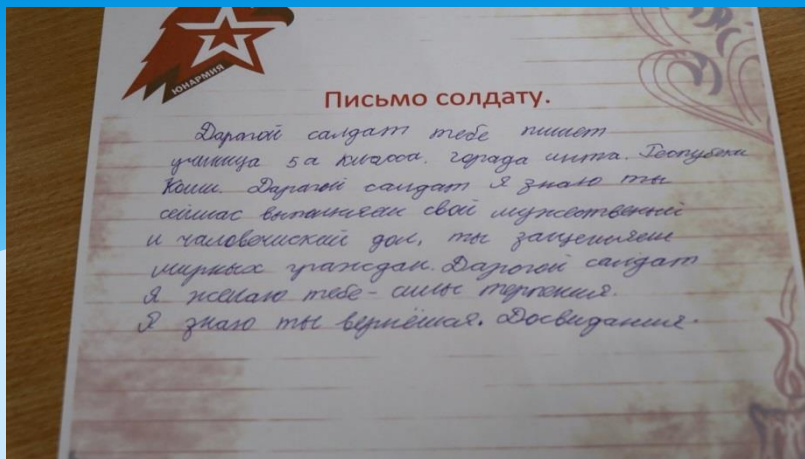 ЮНАРМИЯ
Письмо солдату.
Дарагой салдат тебе пишет
ученица 5а класса. города инта. Респубеки
Коми. Дарагой салдат Я знаю ты
сейчас выполняеш свой мужественый
и чаловечиский дол, ты защещяеш
мирных граждан. Дарогой салдат
Я желаю тебе - силы терпения.
Я знаю ты вернёшая. Досвидания.